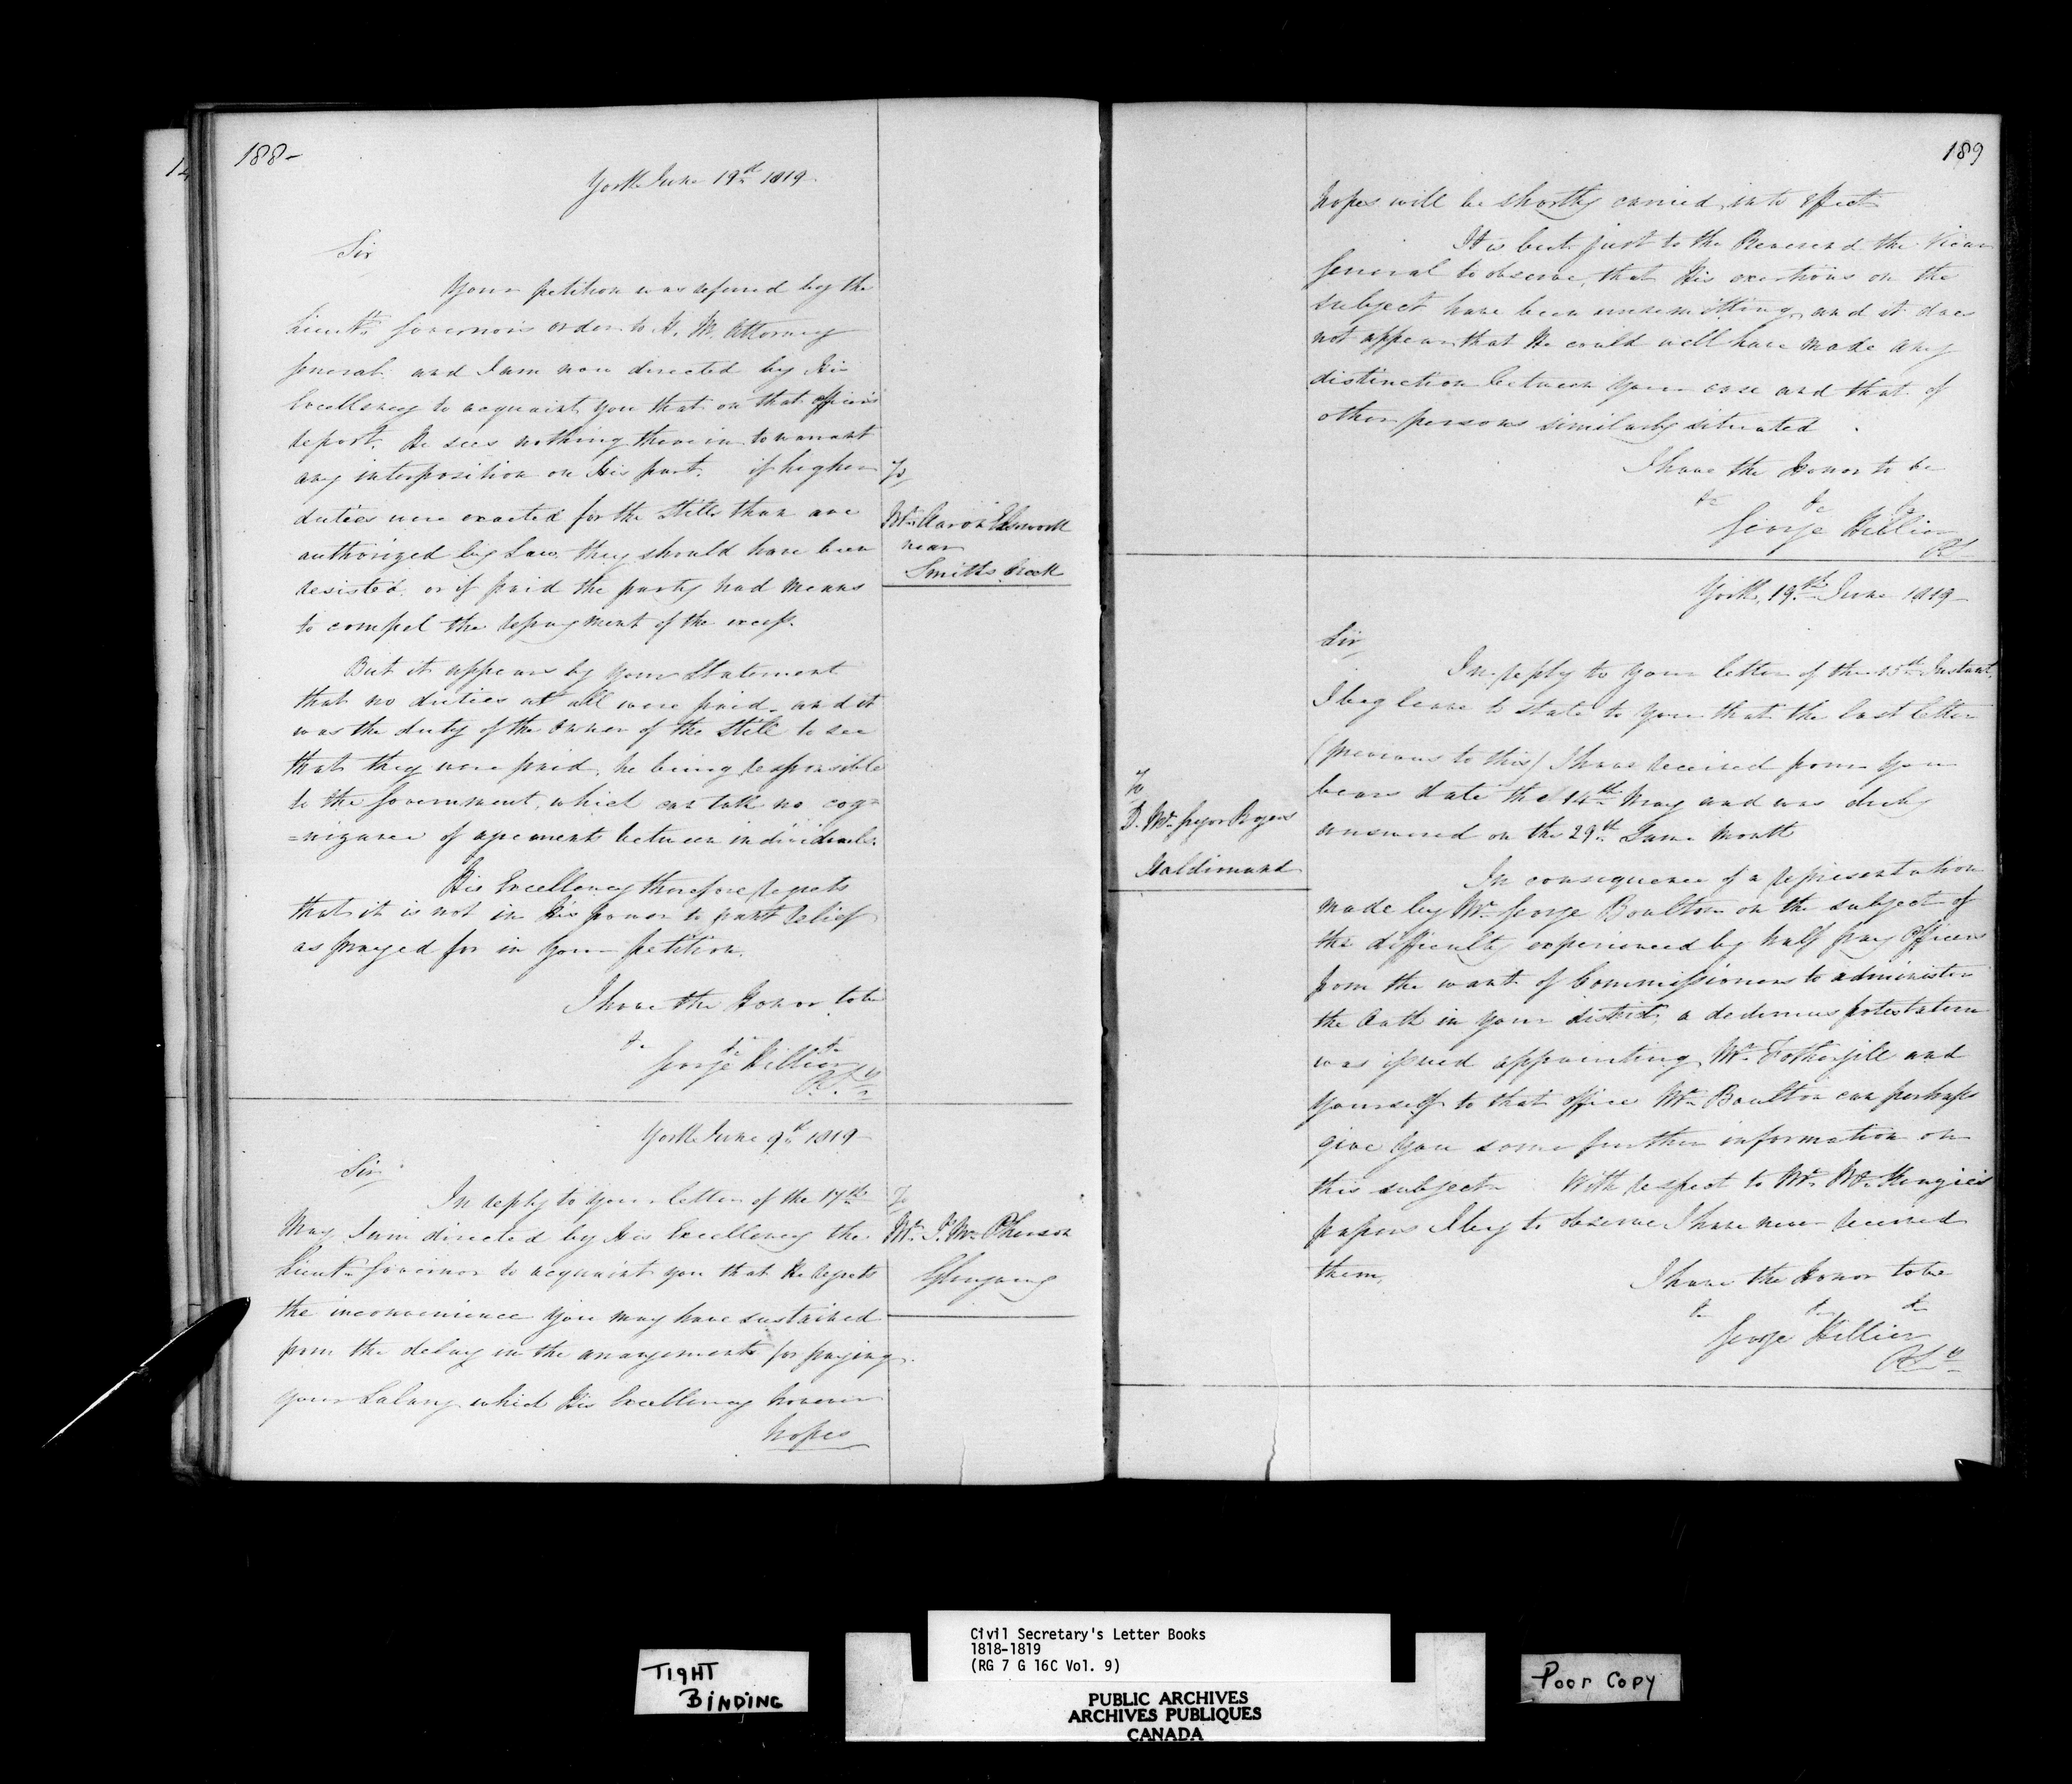 188-
York June 19th 1819-
Sir
Your petition was refered by the
Lieut. Governor's order to H. M. Attorney
General and I am now directed by His
Excellency to acquaint you that on that officer's
report, He sees nothing therein to warrant
any interposition on His part. if higher
duties were exacted for the Stills than are
authorized by Law, they should have been
resisted, or if paid the party had means
to compel the repayment of the excess.
But it appears by your Statement
that no duties at all were paid, and it
was the duty of the owner of the Still to see
that they were paid, he being responsible
to the Government, which can take no cog=
=nizance of agreements between individuals.
His Excellency therefore regrets
that it is not in His power to grant relief
as prayed for in your petition.
I have the Honor to be
&c &c &c
George Hillier
P. S.y
To
Mr. Aaron
near
Smiths Creek
York June 9th 1819-
Sir
In reply to your letter of the 17th
May I am directed by His Excellency the
Lieut. Governor to acquaint you that He regrets
the inconvenience you may have sustained
from the delay in the arrangements for paying
your Salary which His Excellency however
hopes
To
Mr. J. McPherson
Glengary
189
hopes will be shortly carried into effect
It is but just to the Reverend the Vicar
General to observe, that His exertions on the
subject have been unremitting, and it does
not appear that He could well have made any
distinction between your case and that of
other persons similarly situated.
I have the Honor to be
&c &c &c
George Hillier
P.S.
York, 19th June 1819-
Sir,
In reply to your letter of the 15th Instant,
I beg leave to state to you that the last letter
(previous to this) I have received from you
bears date the 14th May and was duly
answered on the 29th Same Month
In consequence of a representation
made by Mr. George Boulton on the subject of
the difficulty experienced by half pay Officers
from the want of Commissioners to administer
the Oath in your district, a dedimus potestatem
was issued appointing Mr. Fothergill and
yourself to that office Mr. Boulton can perhaps
give you some further information on
this subject. With respect to Mr. McKenzie's
papers I beg to observe I have never received
them.
I have the Honor to be
&c &c &c
George Hillier
P.S.y
To
D. McGregor Rogers
Haldimand
TIGHT
BINDING
Civil Secretary's Letter Books
1818-1819
(RG 7 G 16C Vol. 9)
PUBLIC ARCHIVES
ARCHIVES PUBLIQUES
CANADA
Poor Copy